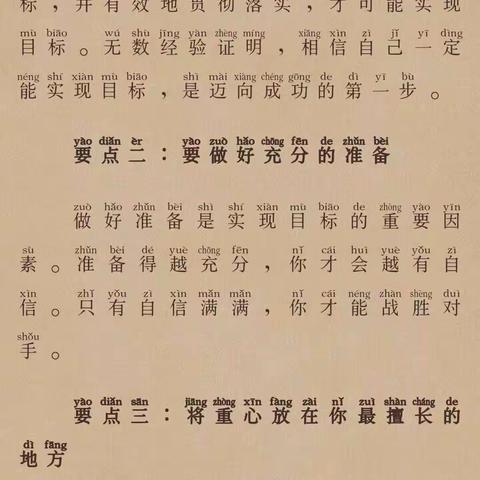 标，并有效地贯彻落实，才可能实现
mù biāo wú shù jīng yàn zhèng míng xiāng xìn zì jǐ yī dìng
目标。无数经验证明，相信自己一定
néng shí xiàn mù biāo shì mài xiàng chéng gōng de dì yī bù
能实现目标，是迈向成功的第一步。
yào diǎn èr yào zuò hǎo chōng fēn de zhǔn bèi
要点二：要做好充分的准备
zuò hǎo zhǔn bèi shì shí xiàn mù biāo de zhòng yào yīn
做好准备是实现目标的重要因
sù zhǔn bèi dé yuè chōng fēn nǐ cái huì yuè yǒu zì
素。准备得越充分，你才会越有自
xìn zhǐ yǒu zì xìn mǎn mǎn nǐ cái néng zhàn shèng duì
信。只有自信满满，你才能战胜对
shǒu
手。
yào diǎn sān jiāng zhòng xīn fàng zài nǐ zuì shàn cháng de
要点三：将重心放在你最擅长的
dì fāng
地方